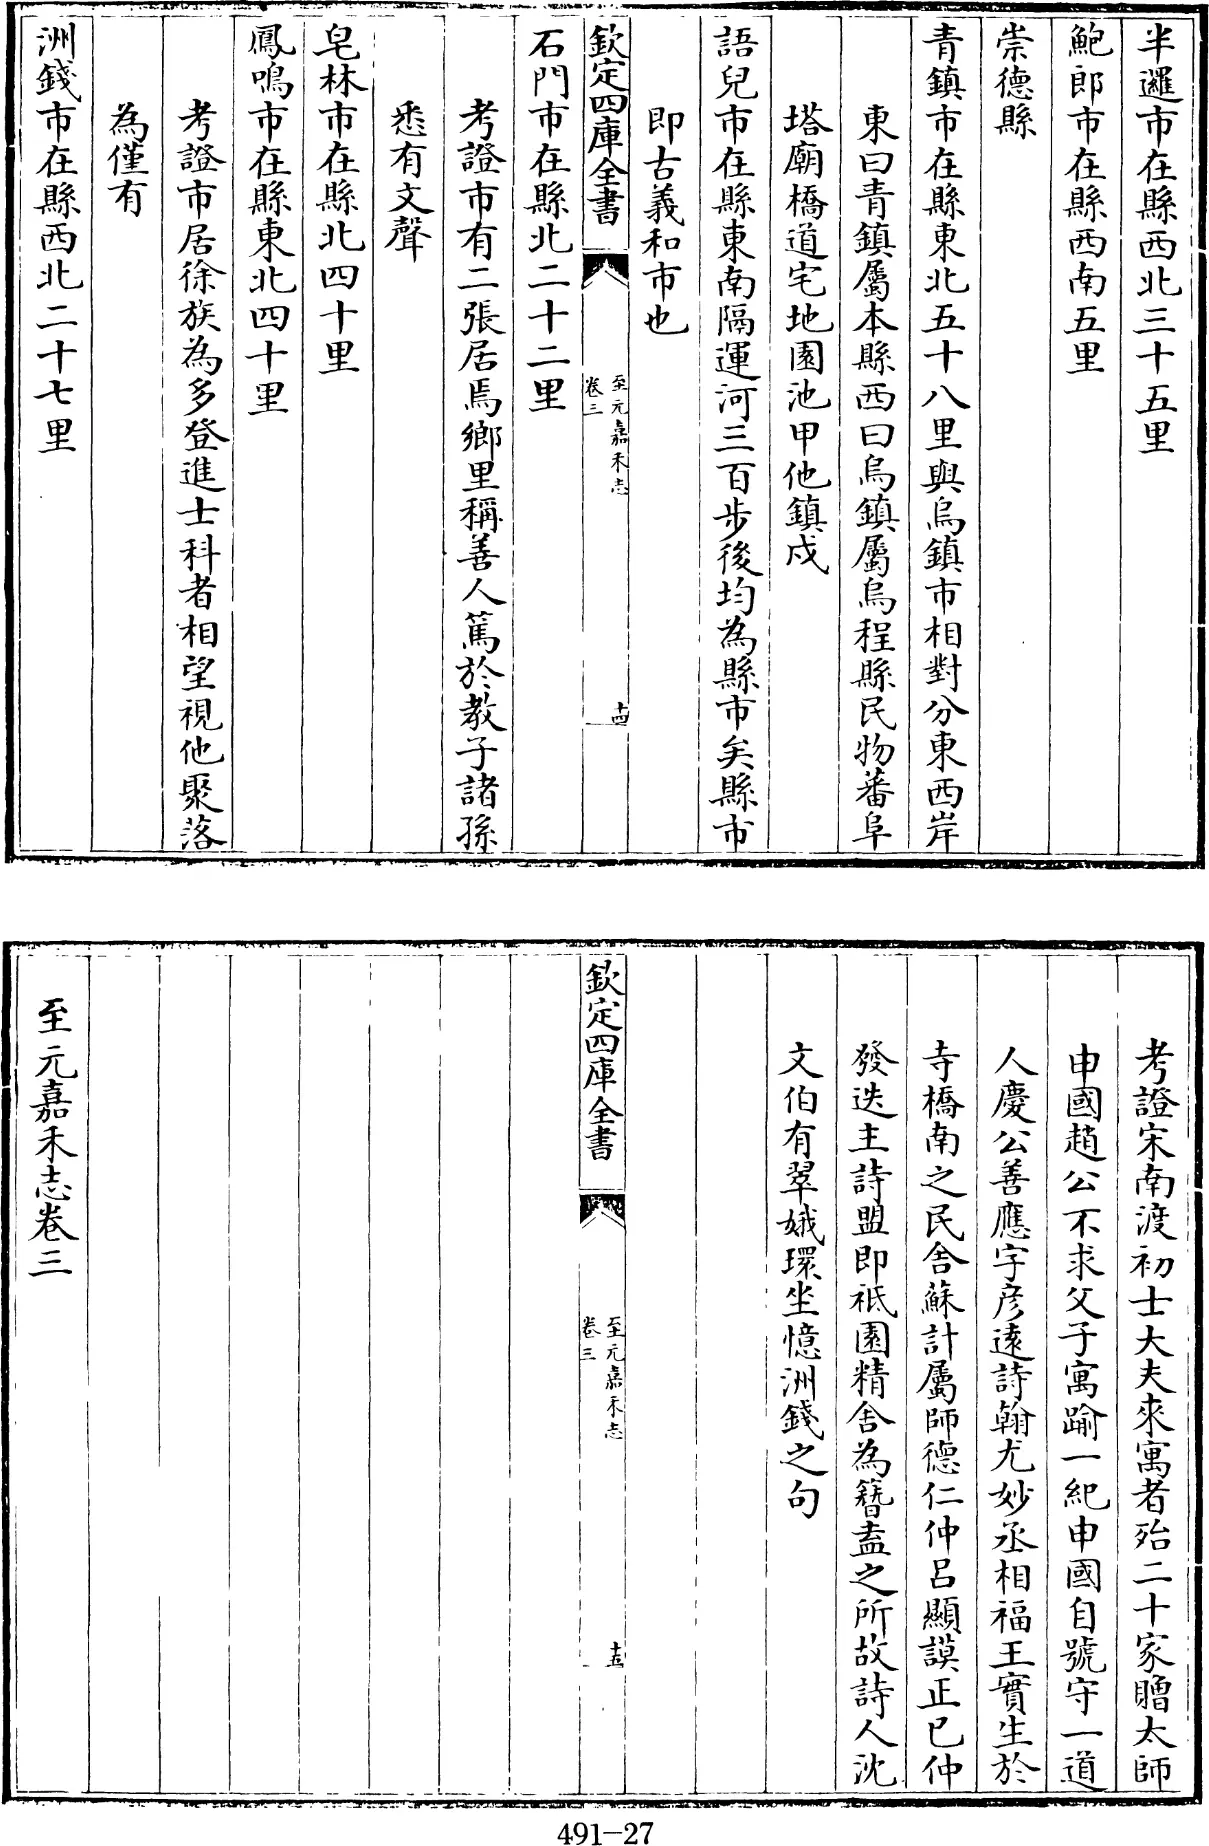 半邏市在縣西北三十五里
鮑郎市在縣西南五里
崇德縣
青鎮市在縣東北五十八里與烏鎮市相對分東西岸
東曰青鎮屬本縣西曰烏鎮屬烏程縣民物蕃阜
塔廟橋道宅地園池甲他鎮戍
語兒市在縣東南隔運河三百步後均為縣市矣縣市
即古義和市也
欽定四庫全書
至元嘉禾志
卷三
十四
石門市在縣北二十二里
考證市有二張居焉鄉里稱善人篤於教子諸孫
悉有文聲
皂林市在縣北四十里
鳳鳴市在縣東北四十里
考證市居徐族為多登進士科者相望視他聚落
為僅有
洲錢市在縣西北二十七里
考證宋南渡初士大夫來寓者殆二十家贈太師
申國趙公不求父子寓踰一紀申國自號守一道
人慶公善應字彥遠詩翰尤妙丞相福王實生於
寺橋南之民舍蘇計屬師德仁仲呂顯謨正已仲
發迭主詩盟即祇園精舍為簪盍之所故詩人沈
文伯有翠娥環坐憶洲錢之句
欽定四庫全書
至元嘉禾志
卷三
十五
至元嘉禾志卷三
491-27